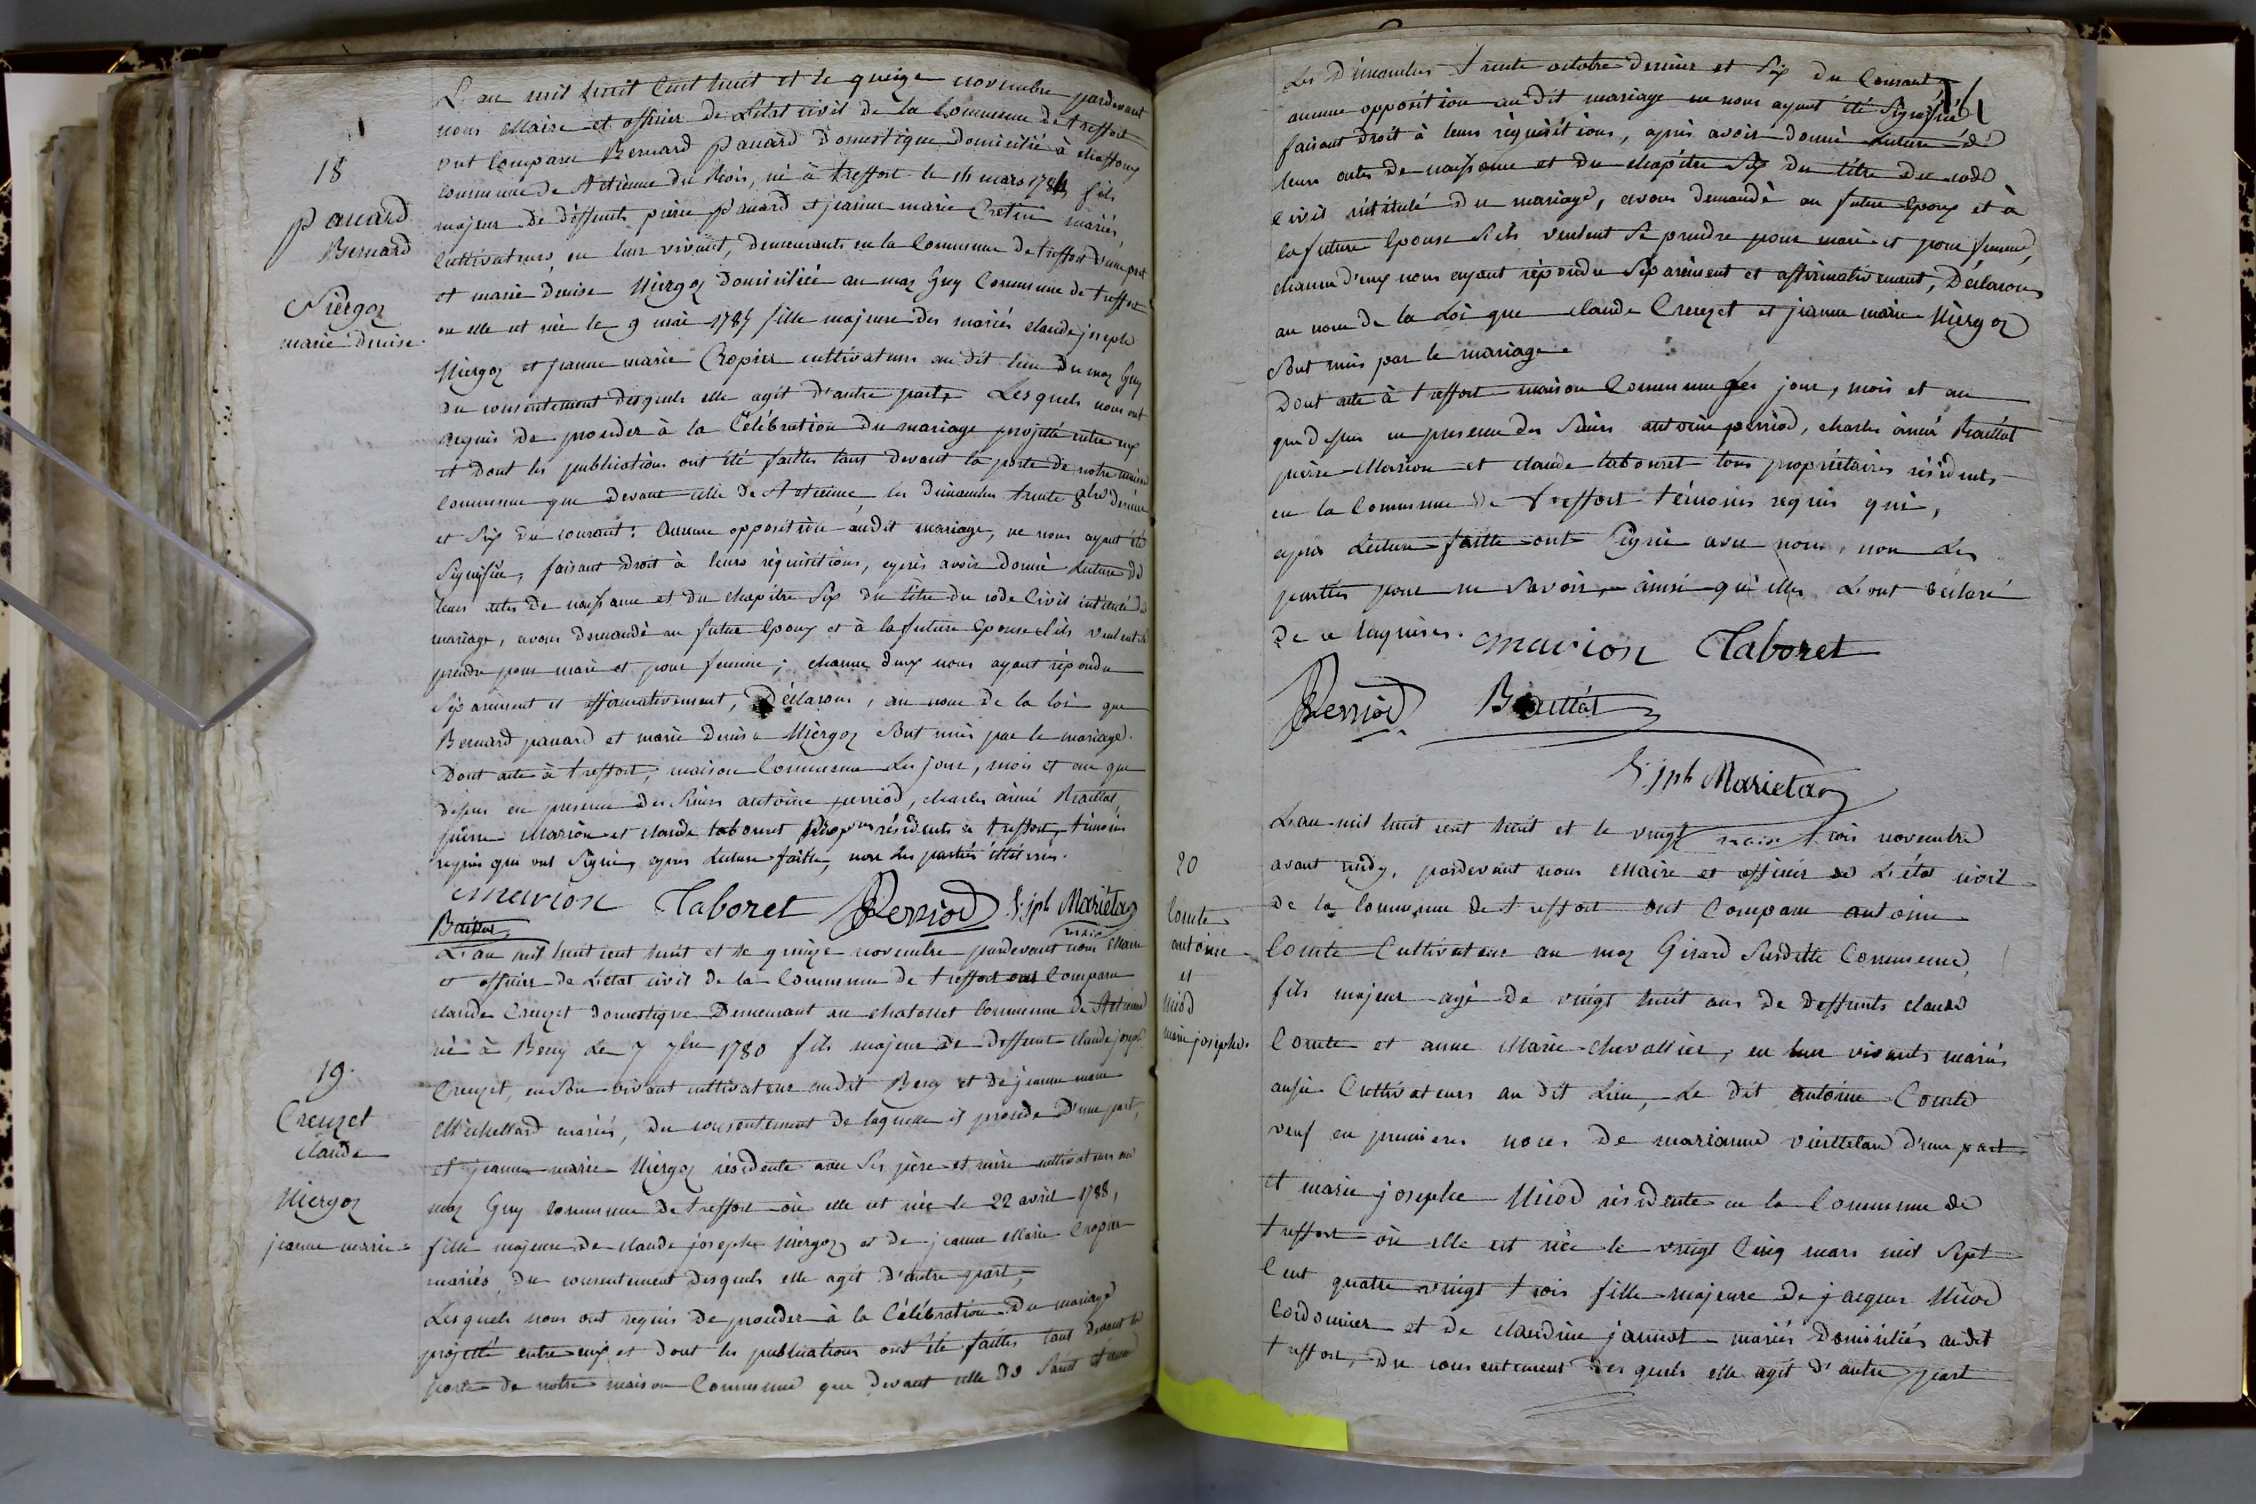 18
Panard
Bernard
Niergoz
marie denise
L'an mil huit cent huit et le quinze novembre pardevant
nous Maire et officier de L'état civil de la Commune de treffort
ont Comparu Bernard panard Domestique domicilié à
Commune de St etienne du bois, né à treffort le 14 mars 1784 fils
majeur de deffunts pierre panard et jeanne marie Cretin mariés,
Cultivateurs, en leur vivant, demeurants en la Commune de treffort d'une part
et marie denise Niergoz domiciliée au maz Guy Commune de treffort
ou elle est née le 9 mai 1787 fille majeure des mariés claude joseph
Niergoz et jeanne marie Cropier cultivateurs au dit lieu du maz Guy
du consentement desquels elle agit d'autre part, Lesquels nous ont
requis de proceder à la Célébration du mariage projetté entre eux
et dont les publications ont été faittes tant devant la porte de notre maison
Commune que devant celle de St etienne les dimanches trente 8bre dernier
et Six du courant: Aucune opposition audit mariage, ne nous ayant été
Signifiée, faisant droit à leurs réquisitions, après avoir donné Lecture de
leurs actes de naissance et du chapitre Six du titre du code Civil intitulé du
mariage, avons demandé au futur Epoux et à la future Epouse S'ils veulent se
prendre pour mari et pour femme; chacun d'eux nous ayant répondu
Séparément et affirmativement, Déclarons, au nom de la loi que
Bernard panard et marie denise Niergoz Sont unis par le mariage.
Dont acte à treffort, maison Commune Les jour, mois et an que
dessus en presence des Sieurs antoine perriod, charles aimé Braillat
pierre Marion et claude tabouret résidents à treffort, témoins
requis qui ont Signé, après Lecture faitte, non Les parties illitérées.
Marion Taboret Perriod S. jph Marietan
Braillat maire
19.
Creuzet
Claude
Niergoz
jeanne marie
L'an mil huit cent huit et le quinze novembre pardevant nous Maire
et officier de L'état civil de la Commune de treffort ont Comparu
claude Creuzet domestique Demeurant au chatonet Commune de St etienne
né à Beny le 7 7bre 1780 fils majeur de Deffunt claude joseph
Creuzet, en Son vivant cultivateur audit Beny et de jeanne marie
Michellard mariés, du consentement de laquelle il procede D'une part,
et jeanne marie Niergoz résidente avec Ses père et mère cultivateurs au
maz Guy Commune de treffort où elle est née le 22 avril 1788,
fille majeure de claude joseph Niergoz et de jeanne Marie Cropier
mariés, du consentement desquels elle agit d'autre part,
Lesquels nous ont requis De proceder à la Célébration du mariage
projetté entre eux et dont les publications ont été faittes tant devant la
porte de notre maison Commune que devant celle de Saint etienne
Les Dimanches trente octobre dernier et Six du Courant
aucune opposition au dit mariage ne nous ayant été Signifiée
faisant droit à leurs réquisitions, après avoir donné Lecture de
leurs actes de naissance et du chapitre Six du titre du code
Civil intitulé du mariage, avons demandé au futur Epoux et à
la future Epouse S'ils veulent Se prendre pour mari et pour femme,
chacun d'eux nous ayant répondu Séparément et affirmativement, Déclarons
au nom de la Loi que claude Creuzet et jeanne marie Niergoz
Sont unis par le mariage
Dont acte à treffort maison Commune Les jour, mois et an
que dessus en presence des Sieurs antoine perriod, charles aimé Braillat
pierre Marion et claude tabouret tous propriétaires résidents
en la Commune de treffort témoins requis qui,
après Lecture faitte ont Signé avec nous, non Les
parties pour ne Savoir ainsi qu'elles L'ont déclaré
de ce enquises. Marion Taboret
Perriod Braillat
S. jph Marietan
maire
20
Comte
antoine
et
Niod
marie josephe.
L'an mil huit cent huit et le vingt trois novembre
avant midy, pardevant nous Maire et officier de L'état civil
de la Commune de treffort ont Comparu antoine
Comte Cultivateur au maz Girard Susditte Commune,
fils majeur agé de vingt huit ans de deffunts claude
Comte et anne Marie chevallier, en leur vivants mariés
aussi Cultivateurs au dit Lieu, Le dit antoine Comte
veuf en premieres noces de marianne d'une part
et marie josephe Niod résidente en la Commune de
treffort où elle est née le vingt Cinq mars mil Sept
Cent quatre vingt trois fille majeure de jacques Niod
Cordonnier et de claudine mariés Domiciliés audit
treffort, du consentement des quels elle agit d'autre part